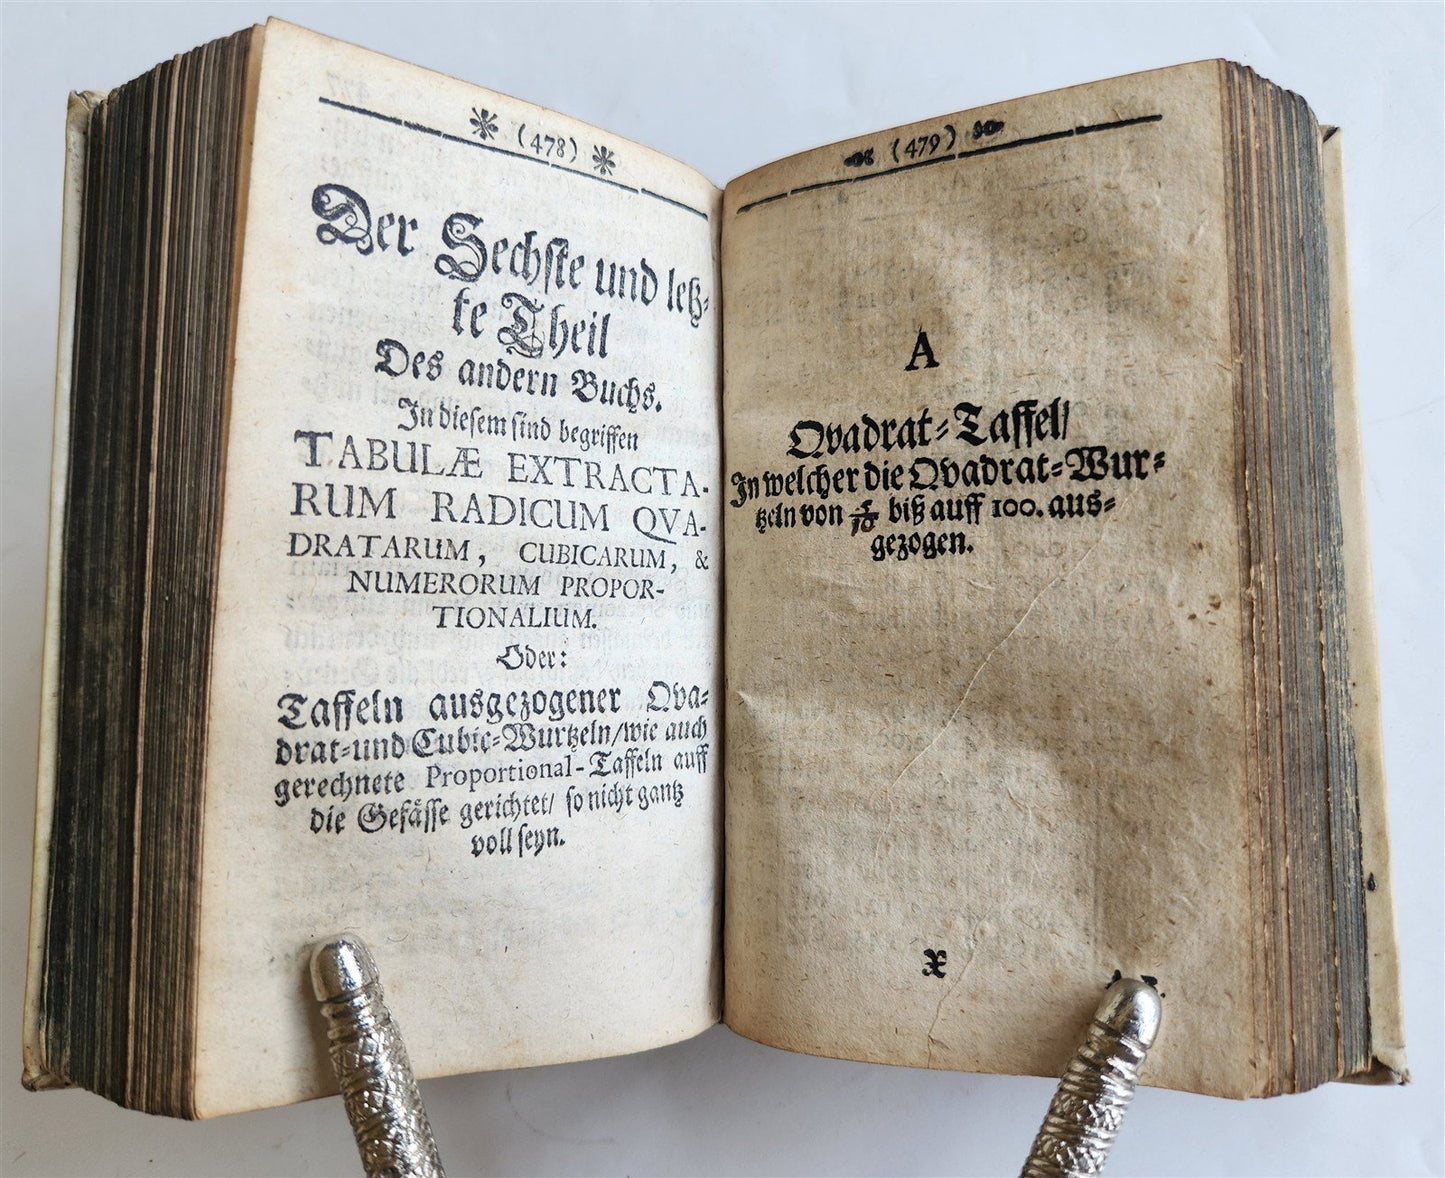 (478)
Der Sechste und letz-
te Theil
Des andern Buchs.
In diesem sind begriffen
TABULÆ EXTRACTA-
RUM RADICUM QVA-
DRATARUM, CUBICARUM, &
NUMERORUM PROPOR-
TIONALIUM.
Oder:
Taffeln ausgezogener Qva-
drat-und Cubic-Wurtzeln/wie auch
gerechnete Proportional-Taffeln auff
die Gefässe gerichtet/ so nicht gantz
voll seyn.
(479)
A
Qvadrat-Taffel/
In welcher die Qvadrat-Wur-
tzeln von biß auff 100. aus-
gezogen.
X